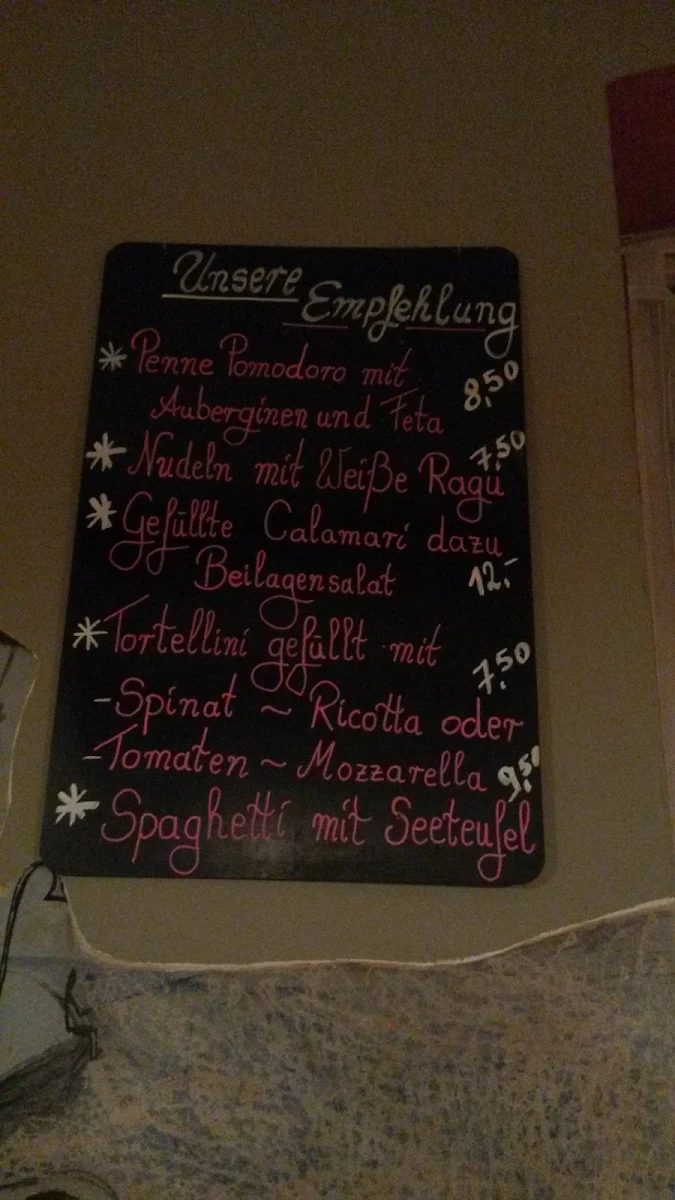 Unsere Empfehlung
* Penne Pomodoro mit 8,50
Auberginen und Feta
* Nudeln mit Weiße Ragu 7,50
* Gefüllte Calamari dazu
Beilagensalat 12,-
* Tortellini gefüllt mit 7,50
- Spinat ~ Ricotta oder
- Tomaten ~ Mozzarella 9,50
* Spaghetti mit Seeteufel